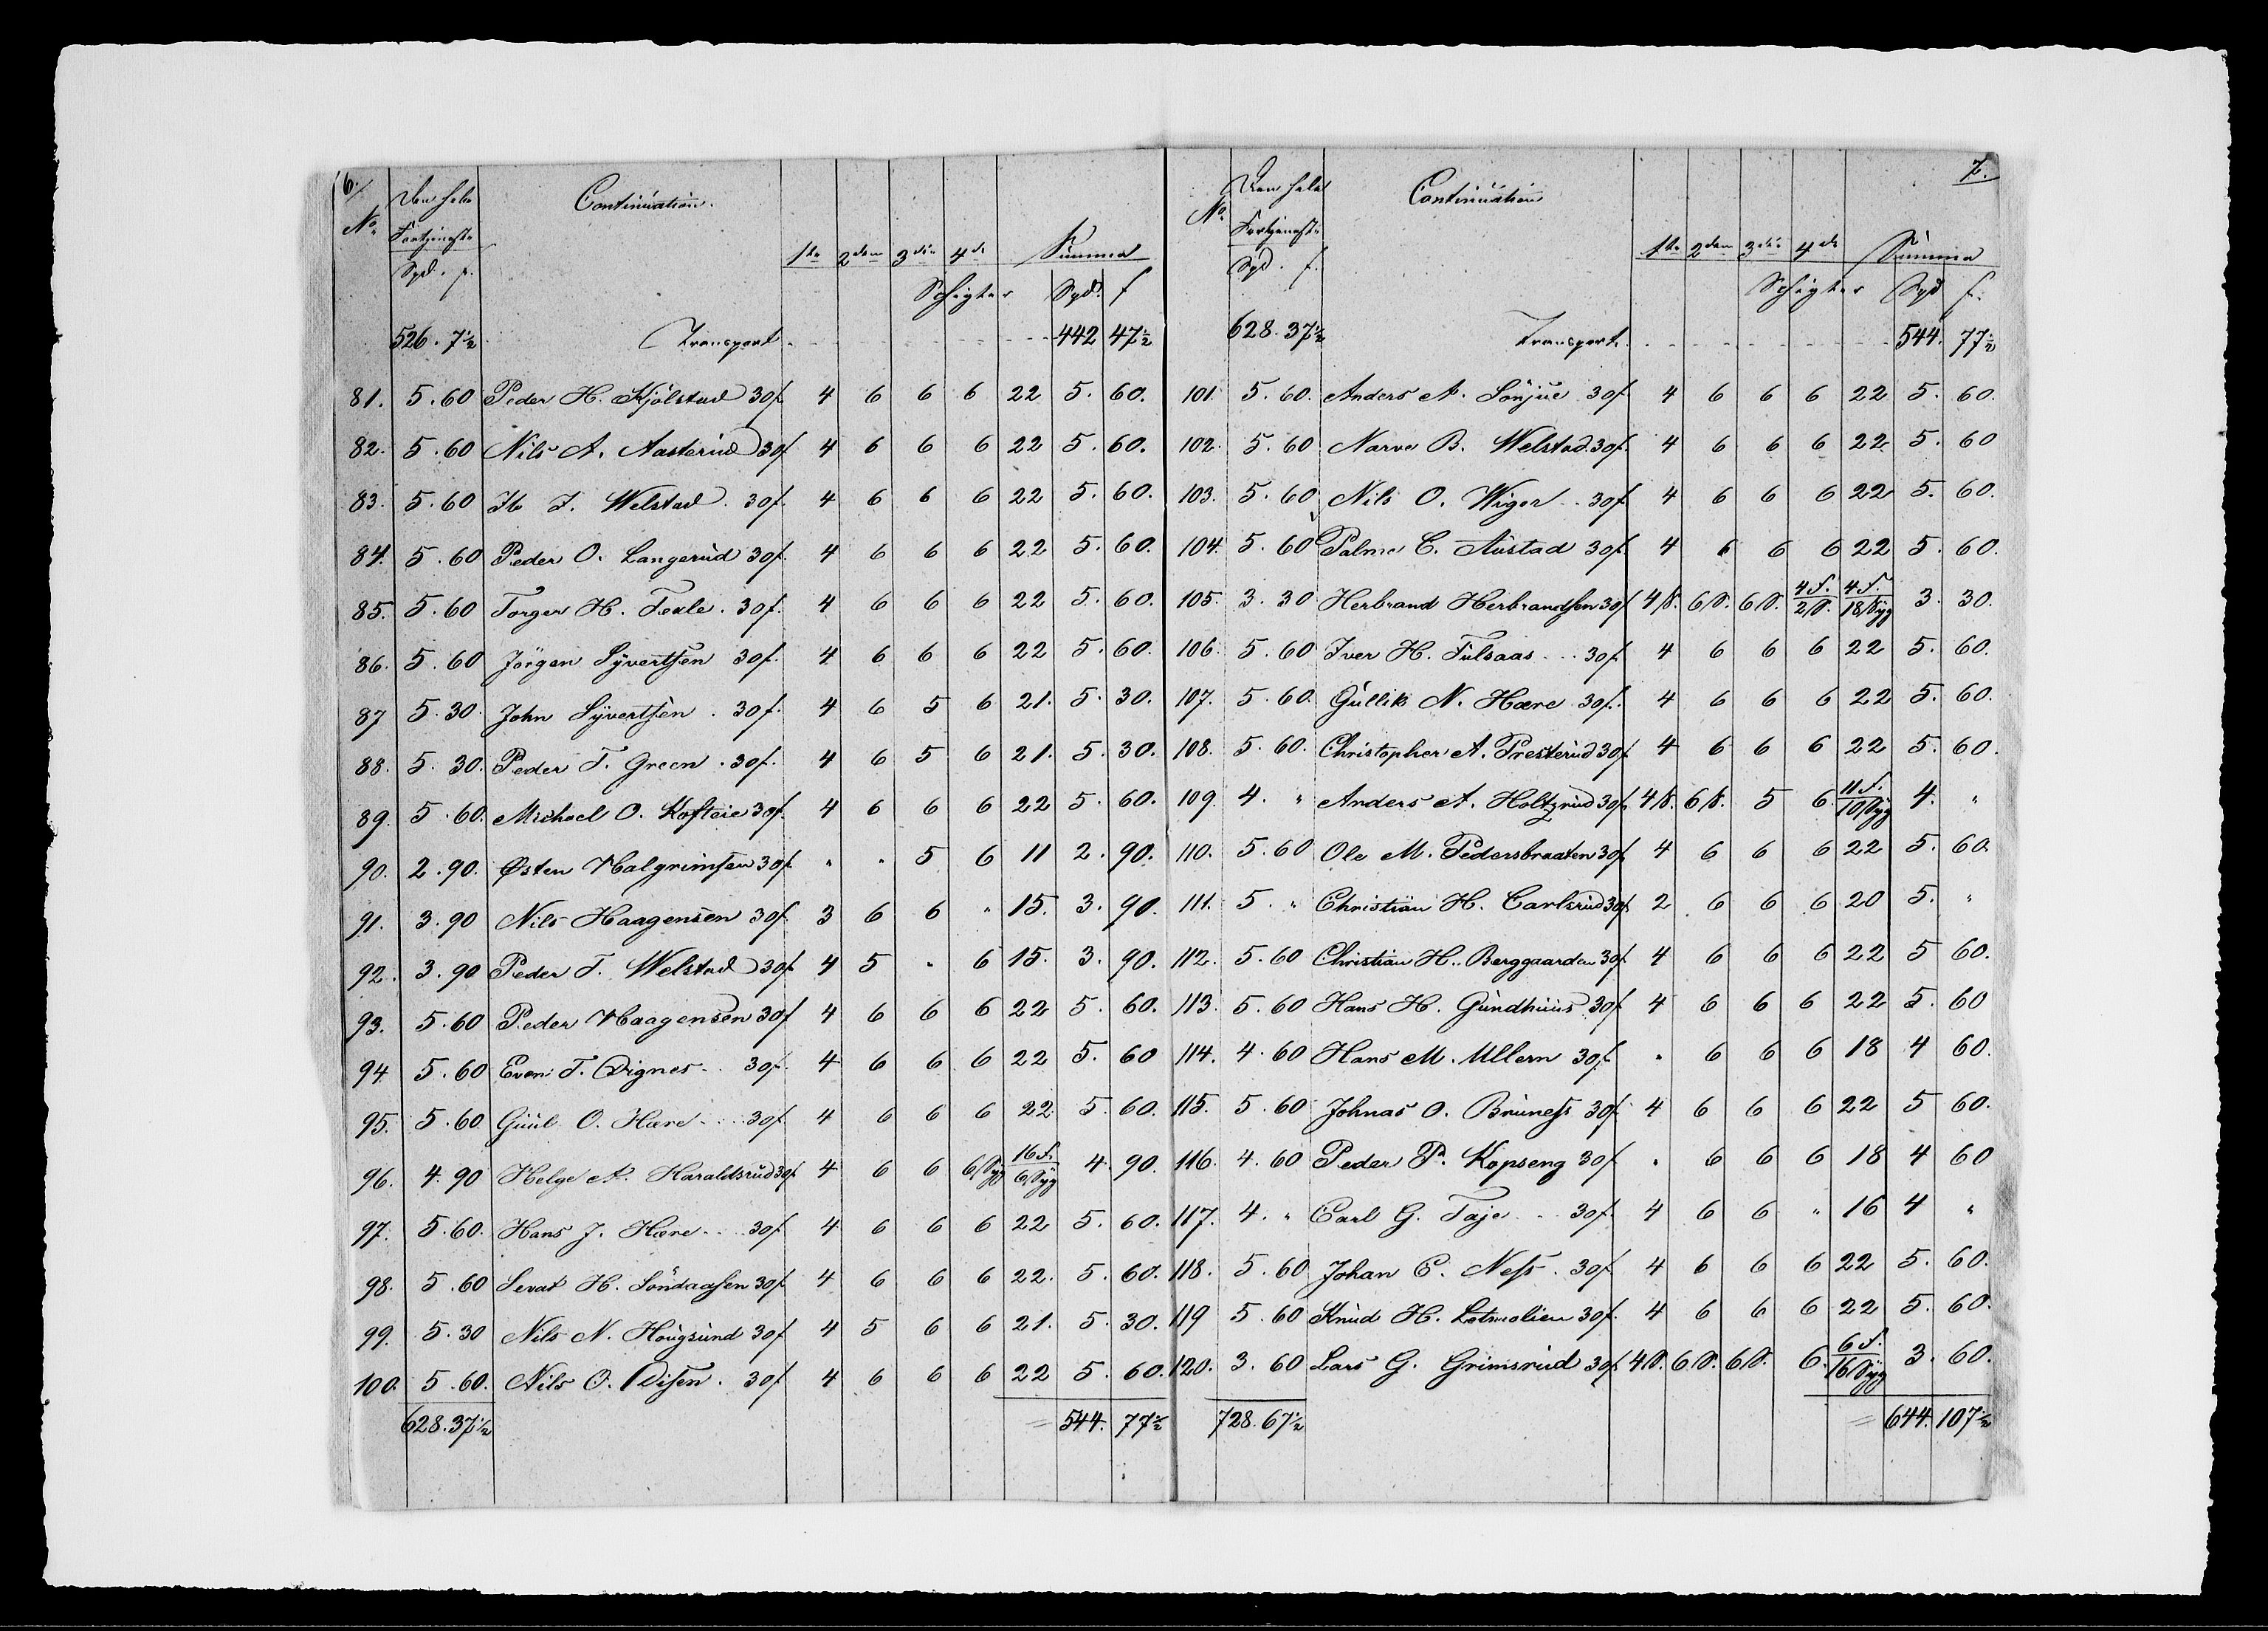 6.
No. Den hele Fortjeneste Continuation. 1te 2den 3die 4de Summa
Spd. f. Schigter Spd. f
526. 7½ Transport 442 47½
81. 5.60 Peder H. Kjölstad 30f. 4 6 6 6 22 5. 60.
82. 5.60 Nils A. Aasterud 30f. 4 6 6 6 22 5. 60.
83. 5.60 Ib J. Welstad. 30f. 4 6 6 6 22 5. 60.
84. 5.60 Peder O. Langerud 30f. 4 6 6 6 22 5. 60.
85. 5.60 Torger H. Texle. 30f. 4 6 6 6 22 5. 60.
86. 5.60 Jörgen Syvertsen 30f. 4 6 6 6 22 5. 60.
87 5.30. John Syvertsen. 30f. 4 6 5 6 21. 5. 30.
88. 5.30. Peder T. Green. 30f. 4 6 5 6 21. 5. 30.
89. 5.60. Michael O. Kofteie 30f. 4 6 6 6 22 5. 60.
90. 2.90. Østen Halgrimsen 30f. " " 5 6 11 2. 90.
91. 3.90 Nils Haagensen 30f. 3 6 6 " 15. 3. 90.
92. 3.90 Peder T. Welstad 30f. 4 5 " 6 15. 3. 90.
93. 5.60 Peder Haagensen 30f 4 6 6 6 22 5. 60.
94 5.60 Even T. Dignes 30f. 4 6 6 6 22 5. 60
95. 5.60 Guul O. Hære 30f. 4 6 6 6 22 5. 60.
96. 4.90 Helge A. Haraldsrud 30f. 4 6 6 6/Syg 16 f. 6/Syg 4. 90.
97. 5.60. Hans J. Hære 30f. 4 6 6 6 22 5. 60.
98. 5.60 Sevat H. Söndaasen 30f. 4 6 6 6 22. 5. 60.
99. 5.30 Nils N. Hougsund 30f 4 5 6 6 21. 5. 30.
100. 5.60. Nils O. Disen. 30f 4 6 6 6 22 5. 60.
628.37½ = 544. 77½
7.
No. Den hele Fortjeneste Continuation 1te 2den 3die 4de Summa
Spd. f. Schigter Spd f.
628. 37½ Transport. 544. 77½
101. 5.60. Anders A. Sönjue 30f 4 6 6 6 22 5. 60.
102. 5.60 Narve B. Welstad. 30f. 4 6 6 6 22 5. 60
103. 5.60 Nils O. Wiger 30f 4 6 6 6 22 5. 60.
104. 5.60 Palme C. Austad 30f. 4 6 6 6 22 5. 60.
105. 3.30 Herbrand Herbrandsen 30f 4/S. 6/S. 6/S. 4 f. 2/S. 4 f. 18/Syg 3. 30.
106. 5.60 Iver H. Fulsaas 30f. 4 6 6 6 22 5. 60.
107. 5.60. Gullik N. Hære 30f. 4 6 6 6 22 5. 60.
108. 5.60. Christopher A. Presterud 30f. 4 6 6 6 22 5. 60.
109. 4. " Anders A. Holtzrud 30f. 4/S. 6/S. 5 6. 11 f. 10/Syg 4. "
110. 5.60 Ole M. Pedersbraaten 30f. 4 6 6 6 22 5. 60.
111. 5. " Christian H. Carlsrud 30f. 2 6 6 6 20 5. "
112. 5.60 Christian H. Berggaarden 30f. 4 6 6 6 22 5 60.
113. 5.60 Hans H. Gundhuus 30f. 4 6 6 6 22 5. 60
114. 4.60 Hans M. Ullern 30f. " 6 6 6 18 4 60.
115. 5.60 Johnas O. Bruness 30f. 4 6 6 6 22 5 60.
116. 4.60 Peder P. Kopseng 30f. " 6 6 6 18 4 60
117. 4. " Carl G. Faje 30f. 4 6 6 " 16 4 "
118. 5.60 Johan E. Ness. 30f. 4 6 6 6 22 5. 60.
119 5.60 Knud H. Lotmolien 30f. 4 6 6 6 22 5. 60.
120. 3.60 Lars G. Grimsrud 30f. 4/S. 6/S. 6/S. 6. 6 f. 16/Syg 3. 60.
728.67½ = 644. 107½